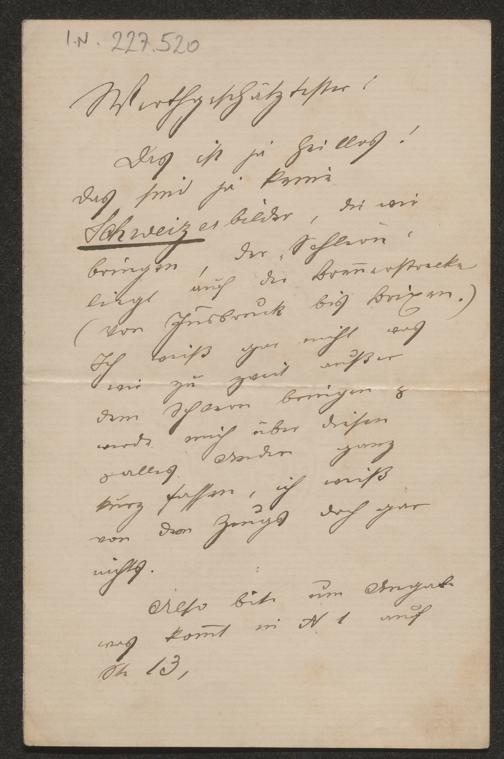 I.N. 227.520
Werthgeschätztester!
Das ist ja heillos!
das sind ja keine
Schweizerbilder, die wir
bringen, der „Schlern"
liegt auf der Brennerstrecke
(von Insbruck bis Brixen.)
Ich weiß gar nicht was
wir zu zweit außer
dem Schlern bringen &
werde mich über diesen
alles Andere ganz
kurz fassen, ich weiß
von dem Zeugs doch gar
nichts.
Also bitte um Angabe
was kommt in N 1 auf
13,